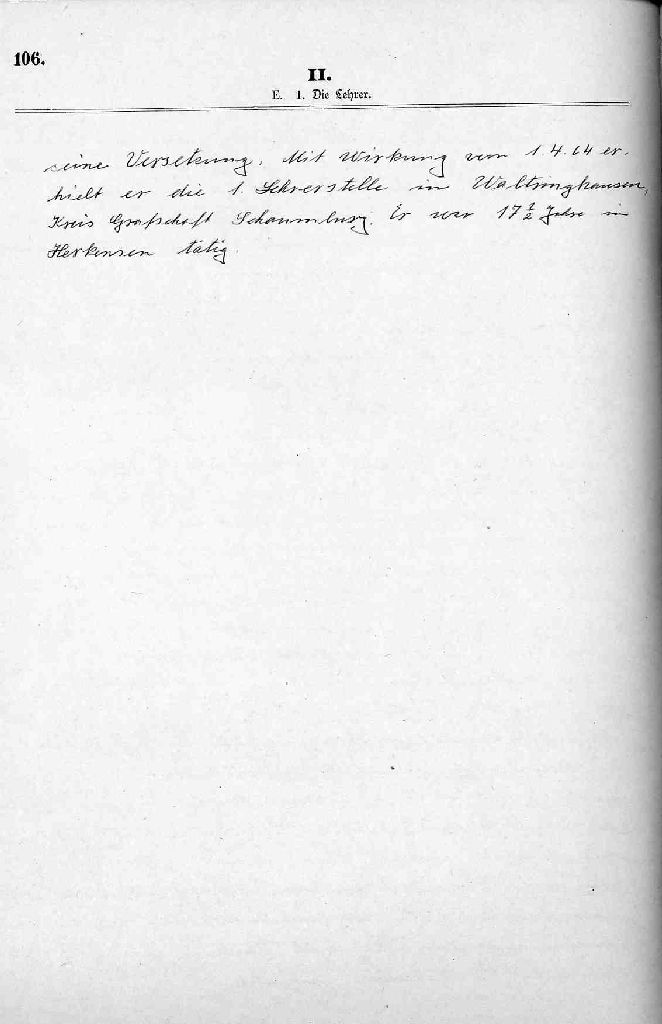 106.
II.
E. 1. Die Lehrer.
seine Versetzung. Mit Wirkung vom 1.4.64 er-
hielt er die 1. Lehrerstelle in Waltringhausen,
Kreis Grafschaft Schaumburg. Er war 17 1/2 Jahre in
Herkensen tätig.